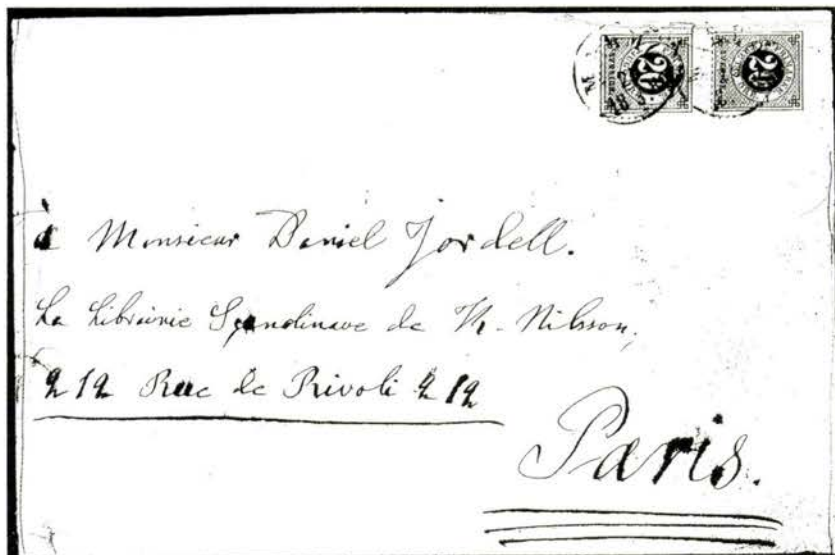 20 20
à Monsieur Daniel Jordell.
La Librairie Scandinave de Th. Nilsson,
212 Rue de Rivoli 212
Paris.